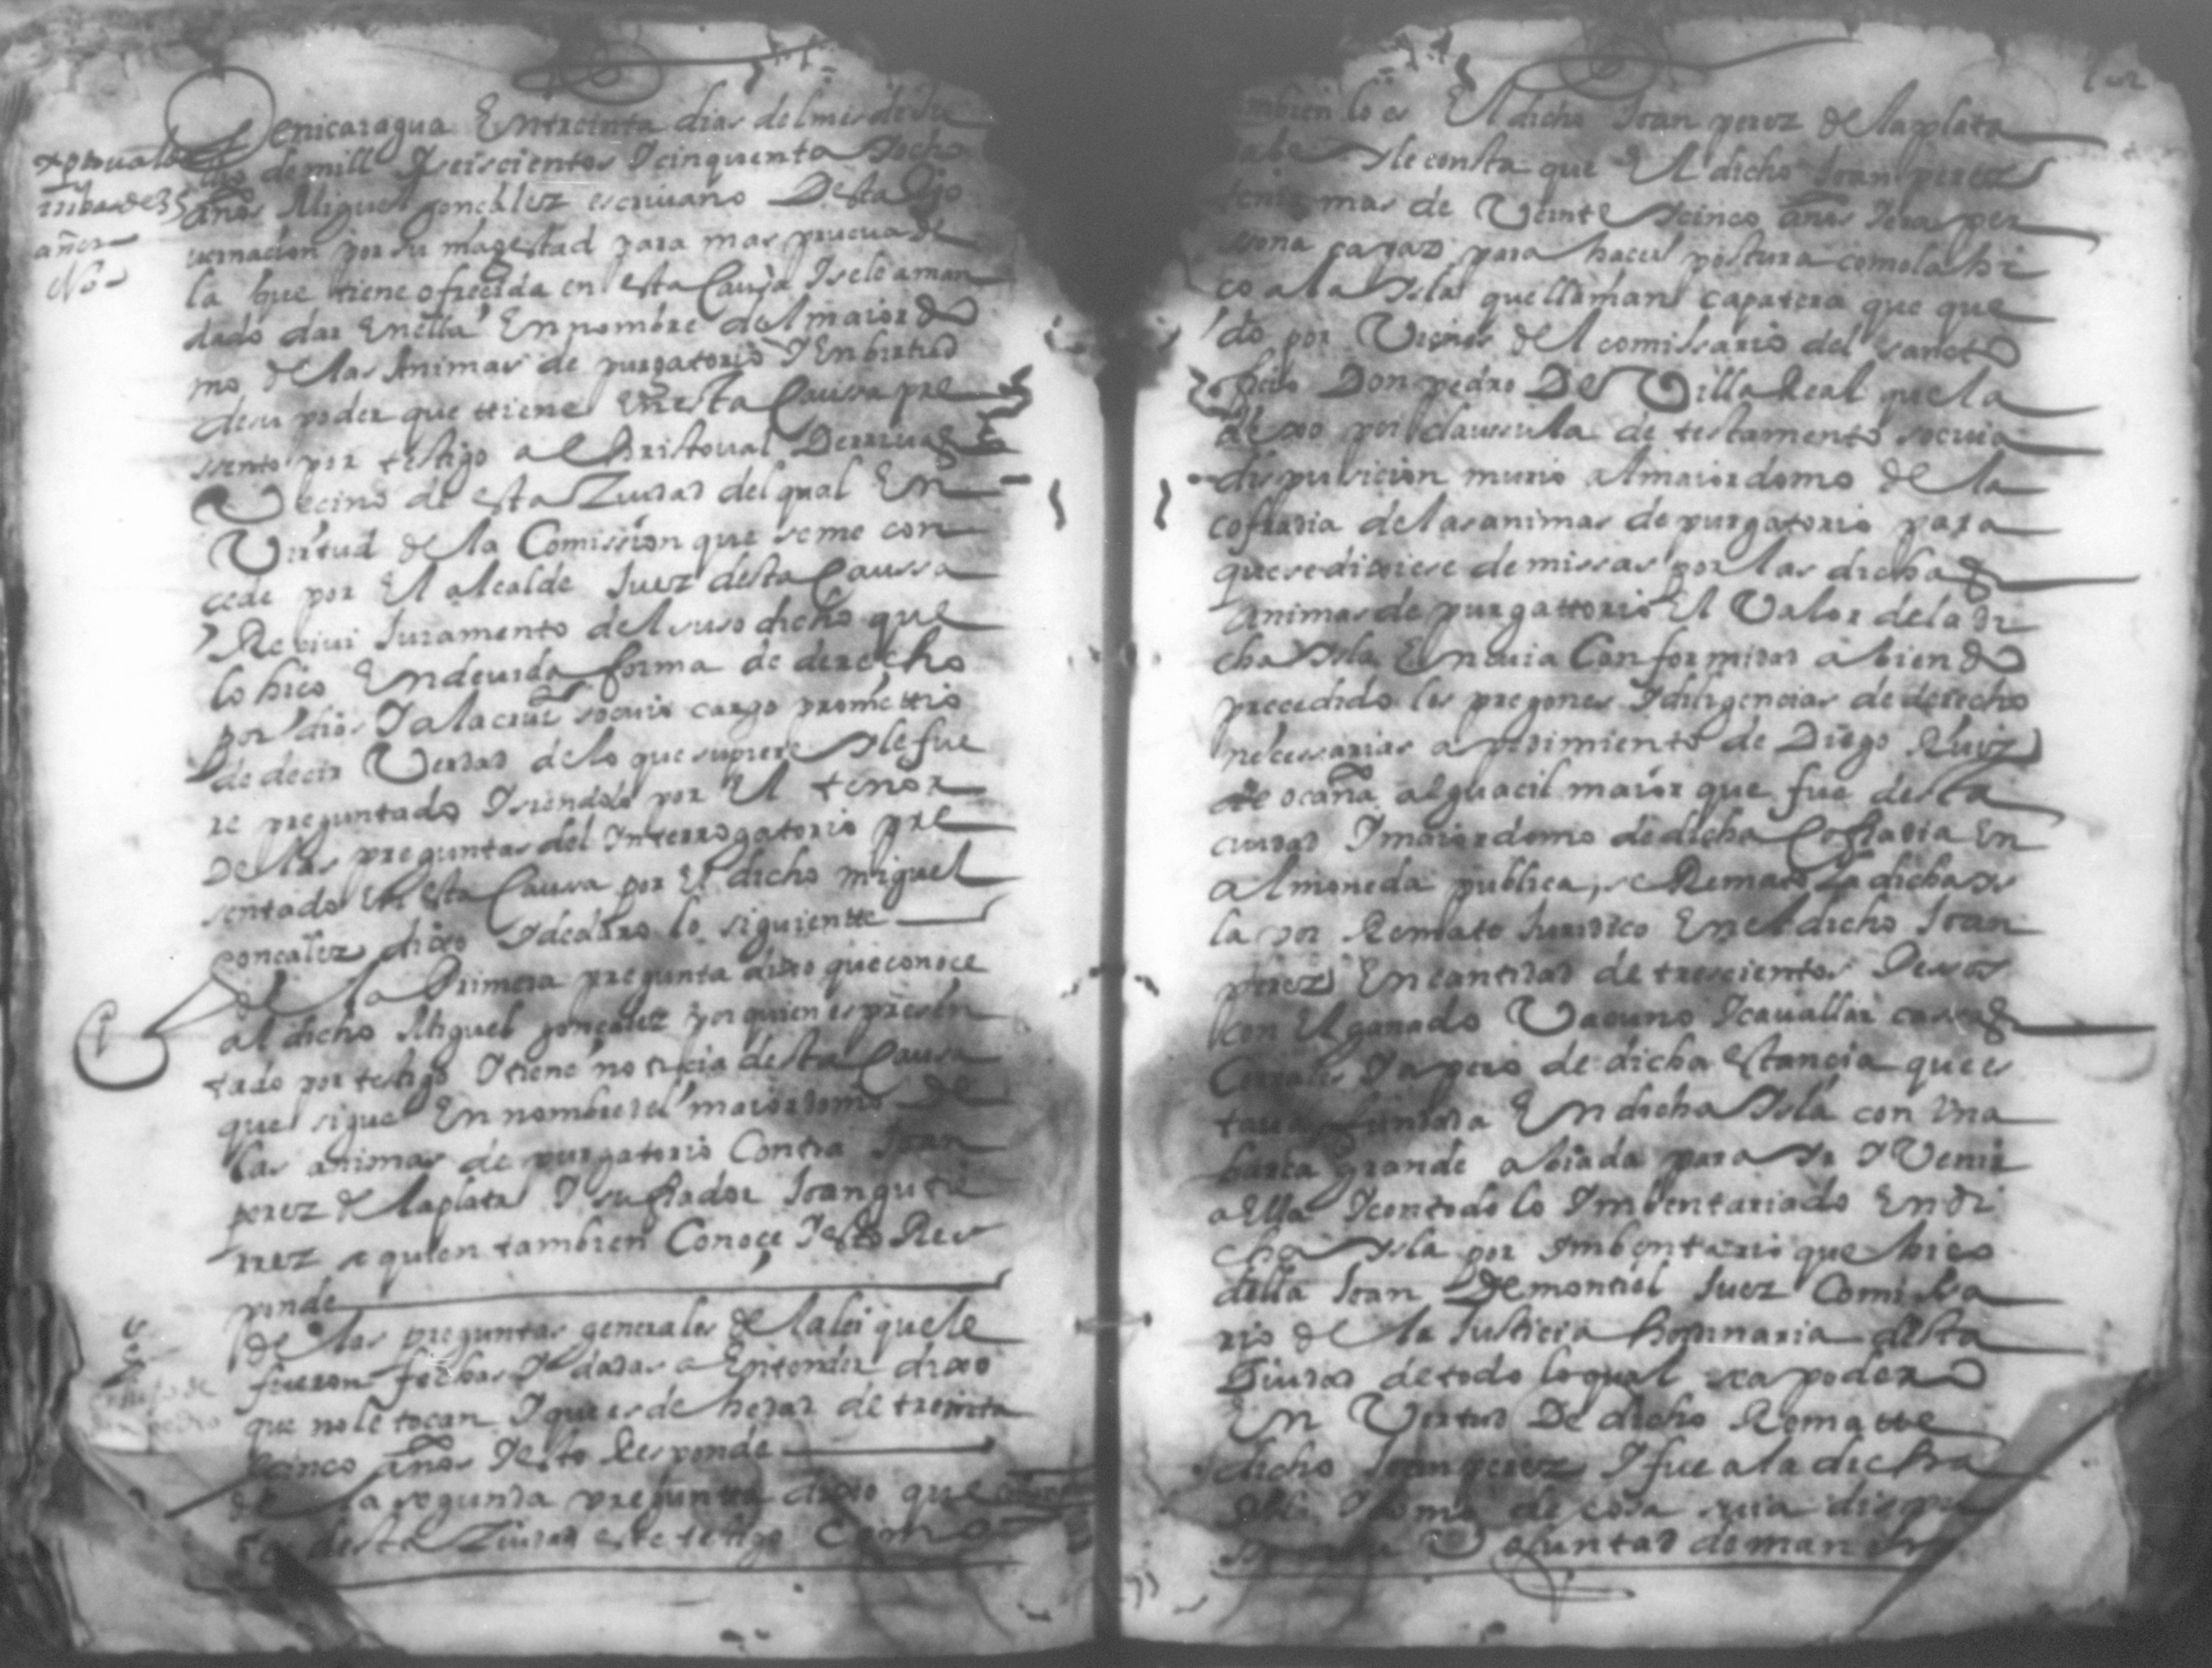 xpoual de
ribas de 35
años
Denicaragua En treinta dias del mes de Ju
lio de mill Y seiscientos Y cinquenta Y ocho
años Miguel gonçalez escriuano Desta Go
uernacion por su magestad para mas prueua de
la que tiene ofrecida en esta Caussa Y se le a man
dado dar En ella En nombre del maiordo
mo de las Animas de purgatorio Y En birtud
de su poder que ttiene En esta Caussa pre
ssento por testigo a Christoual Derriuas
Vecino de esta Ziudad del qual En
Virtud de la Comission que se me con
cede por El alcalde Juez desta Caussa
Reciui Juramento del suso dicho que
lo hiço En deuida forma de derecho
por dios Y a la cruz so cuio cargo promettio
de decir Verdad de lo que supiere Y le fue
re preguntado Y siendolo por El tenor
De las preguntas del Interrogatorio pre
sentado En esta Caussa por El dicho miguel
gonçalez dixo Y declaro lo siguientte
1 de la Primera pregunta dixo que conoce
al dicho Miguel gonçalez por quien es presen
tado por testigo Y tiene noticia desta Caussa
que sigue En nombre del maiordomo de
las animas de purgatorio Contra Joan
perez de la plata Y su fiador Joan gutie
rrez a quien tambien Conoce Y esto Res
ponde
de las preguntas generales de la lei que le
fueron fechas Y dadas a Entender dixo
que no le tocan Y que es de hedad de treinta
Y cinco años Y esto Responde
de la segunda pregunta dixo que
desta Ziudad este testigo Como
tambien lo es El dicho Joan perez de la plata
saue Y le consta que El dicho Joan perez
tenia mas de Veinte Y cinco años Y era per
sona capaz para hacer postura como la hi
ço a la Ysla que llaman capatera que que
do por Vienes del comissario del sancto
oficio Don pedro De Villa Real que la
dexo por claussula de testamento so cuia
dispusicion murio al maiordomo de la
cofradia de las animas de purgatorio para
que se dixiese de missas por las dichas
Animas de purgattorio El Valor de la di
cha Ysla En cuia Conformidad abiendo
precedido los pregones Y diligencias de derecho
necessarias a pedimiento de Diego Ruiz
de ocaña alguacil maior que fue desta
ciudad Y maiordomo de dicha Cofradia En
almoneda publica, se Remato La dicha Ys
la por Remate Juridico En el dicho Joan
perez En cantidad de trescientos Pesos
con El ganado Vacuno Y cauallar cassas
Corrales Y apero de dicha estancia que es
taua fundada En dicha Ysla con Vna
barca grande abiada para Yr Y Venir
a Ella Y con todo lo Ymbentariado En di
cha Ysla por Ymbentario que hiço
della Joan De montiel Juez Comissa
rio de la Justicia hordinaria desta
Ziudad de todo lo qual se apodero
En Virtud De dicho Rematte
dicho Joan perez Y fue a la dicha
Ysla Y como de cosa suia dispu
Voluntad